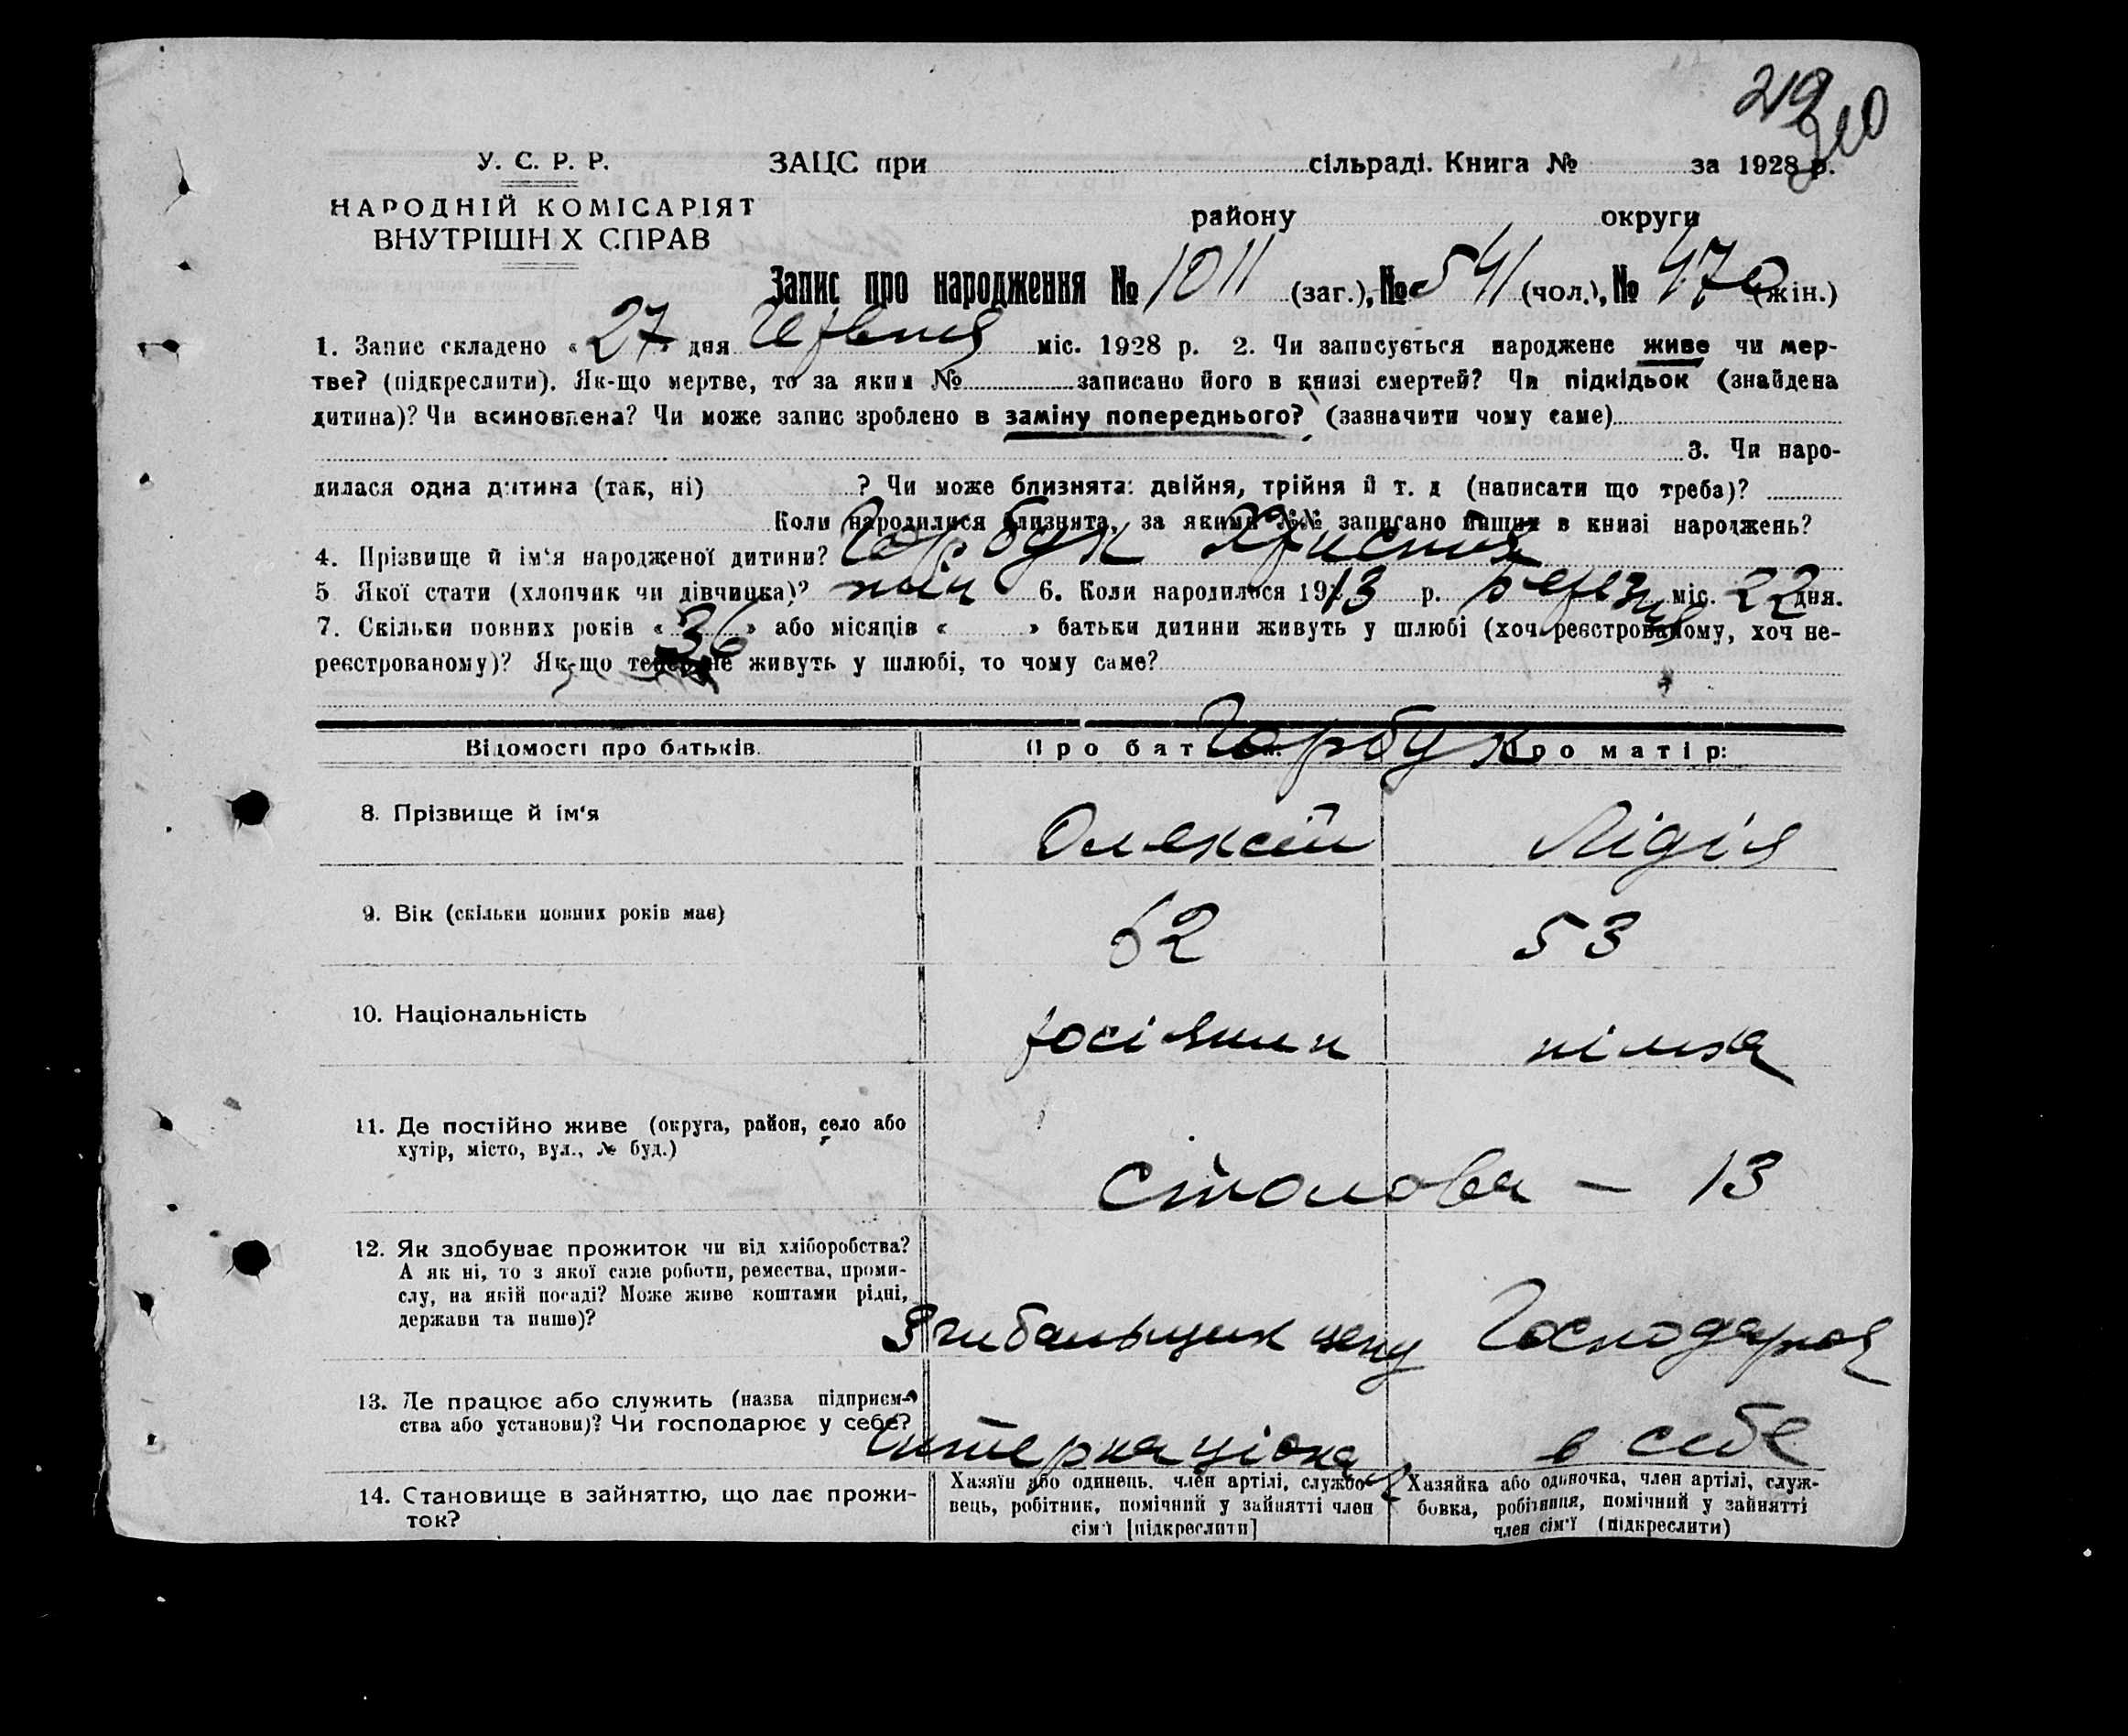 219
210
У. С. Р. Р.
НАРОДНІЙ КОМІСАРІЯТ
ВНУТРІШН Х СПРАВ
ЗАЦС при сільраді. Книга № за 1928 р.
району округи
Запис про народження № 1011 (заг.), № 541 (чол.), № 470 (жін.)
1. Запис складено « 27 » дня червня міс. 1928 р. 2. Чи записується народжене живе чи мер-
тве? (підкреслити). Як-що мертве, то за яким № записано його в книзі смертей? Чи підкідьок (знайдена
дитина)? Чи всиновлена? Чи може запис зроблено в заміну попереднього? (зазначити чому саме)
3. Чи наро-
дилася одна дитина (так, ні) ? Чи може близнята: двійня, трійня й т. д (написати що треба)?
Коли народилися близнята, за якими №№ записано инших в книзі народжень?
4. Прізвище й ім'я народженої дитини? Горбук
5 Якої стати (хлопчик чи дівчинка)? 6. Коли народилося 1913 р. березня міс. 22 дня.
7. Скільки повних років « 36 » або місяців « » батьки дитини живуть у шлюбі (хоч реєстрованому, хоч не-
реєстрованому)? Як-що тепер не живуть у шлюбі, то чому саме?
Відомості про батьків. Про батька: Про матір:
Горбук
8. Прізвище й ім'я Олексій Лідія
9. Вік (скільки повних років має) 62 53
10. Національність росіянин німка
11. Де постійно живе (округа, район, село або
хутір, місто, вул., № буд.)
Столова — 13
12. Як здобуває прожиток чи від хліборобства?
А як ні, то з якої саме роботи, ремества, проми-
слу, на якій посаді? Може живе коштами рідні,
держави та инше)?
Згибальщик цеху Господарка
13. Де працює або служить (назва підприєм-
ства або установи)? Чи господарює у себе?
Інтернаціонал в себе
14. Становище в зайняттю, що дає прожи-
ток?
Хазяїн або одинець, член артілі, службо-
вець, робітник, помічний у зайнятті член
сім'ї [підкреслити]
Хазяйка або одиночка, член артілі, служ-
бовка, робітниця, помічний у зайнятті
член сім'ї (підкреслити)